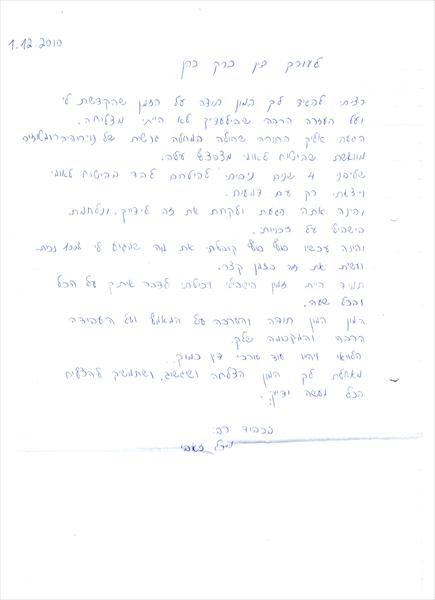 1.12.2010
לעורך דין ברק כהן
רציתי להגיד לך המון תודה על הזמן שהקדשת לי
ועל העזרה הרבה שבילעדיך לא הייתי מצליחה.
הגעתי אליך בתורה שחולה במחלה גנטית של
מיואשת שביטוח לאומי
שלפני 4 שנים ניסיתי להילחם לבד בביטוח לאומי
ויצאתי רק עם דמעות.
והינה אתה הגעת ולקחת את זה לידייך, ונלחמת
בישבילי על זכויותי.
והינה עכשו סוף סוף קיבלתי את מה שמגיע לי 100% נכות
ועשית את זה בזמן קצר.
תמיד היית זמין בישבילי ויכולתי לדבר איתך על הכל
ובכל שעה.
המון המון תודה והערכה על המאמץ ועל העבודה
הרבה והמקצועית שלך.
הלוואי ויהיו עוד עורכי דין כמוך.
מאחלת לך המון הצלחה ושיגשוג, ושתמשיך להצליח
בכל מעשה ידייך.
בכבוד רב: